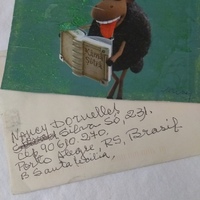 Nancy Dornelles
Silva Só, 231.
Cep 90610-270.
Porto Alegre, RS, Brasil
B Santa Cecilia,